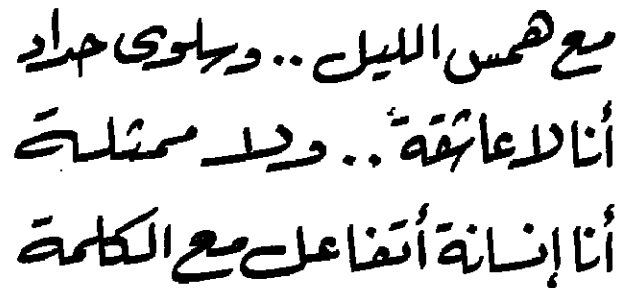 مع همس الليل .. وسلوى حداد
أنا لا عاشقة .. ولا ممثلة
أنا إنسانة أتفاعل مع الكلمة